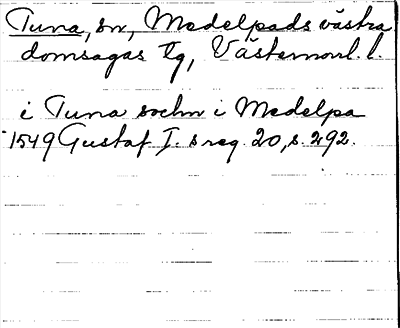 Tuna, sn, Medelpads västra
domsagas tg, Västernorrl. l.
i Tuna sochn i Medelpa
1549 Gustaf I. s reg. 20, s. 292.